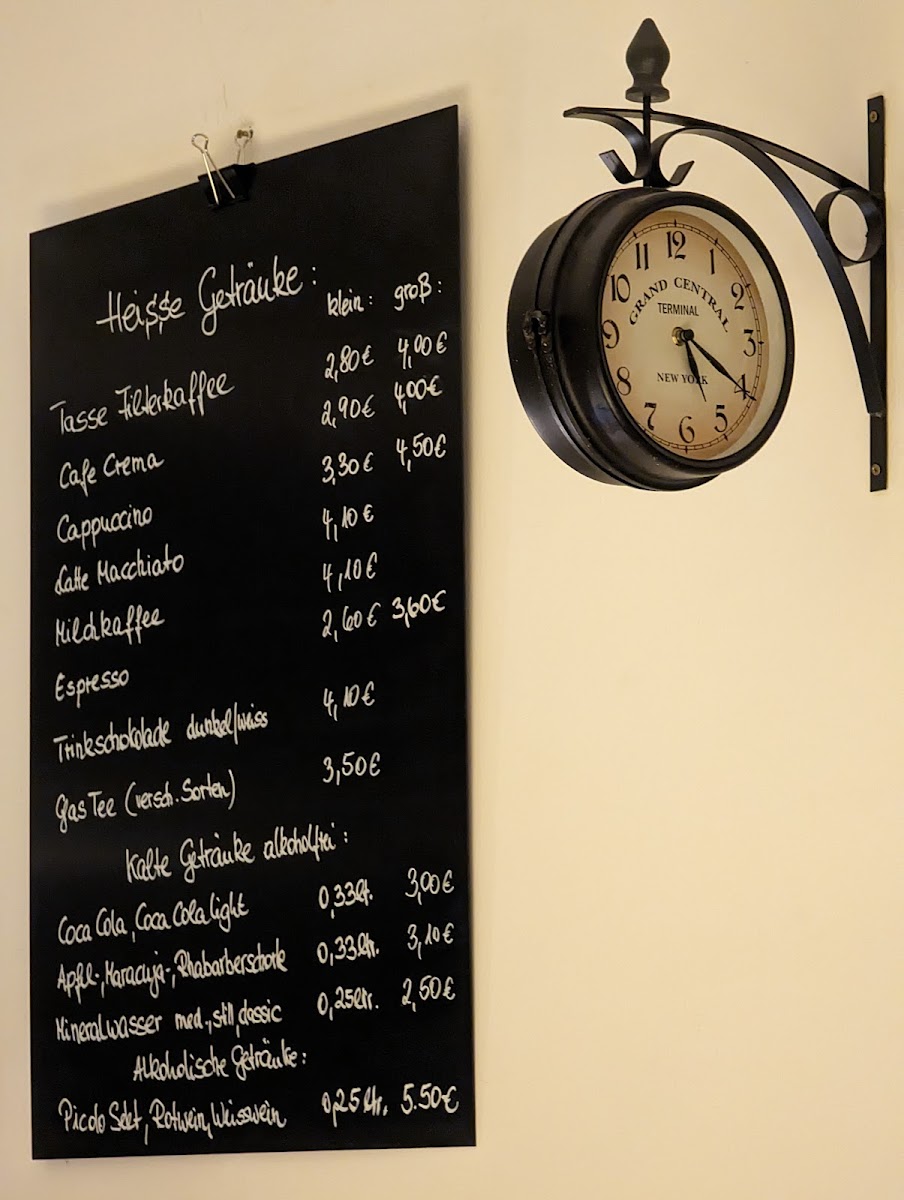 Heisse Getränke:
klein: groß:
Tasse Filterkaffee 2,80€ 4,00€
Cafe Crema 2,90€ 4,00€
Cappuccino 3,30€ 4,50€
Latte Macchiato 4,10€
Milchkaffee 4,10€
Espresso 2,60€ 3,60€
Trinkschokolade dunkel/weiss 4,10€
Glas Tee (versch. Sorten) 3,50€
Kalte Getränke alkoholfrei:
Coca Cola, Coca Cola light 0,33ltr. 3,00€
Apfel-, Maracuja-, Rhabarberschorle 0,33ltr. 3,10€
Mineralwasser med., still, classic 0,25ltr. 2,50€
Alkoholische Getränke:
Picolo Sekt, Rotwein, Weisswein 0,25 ltr. 5.50€
12
11 1
10 2
GRAND CENTRAL
TERMINAL
9 3
NEW YORK
8 4
7 5
6